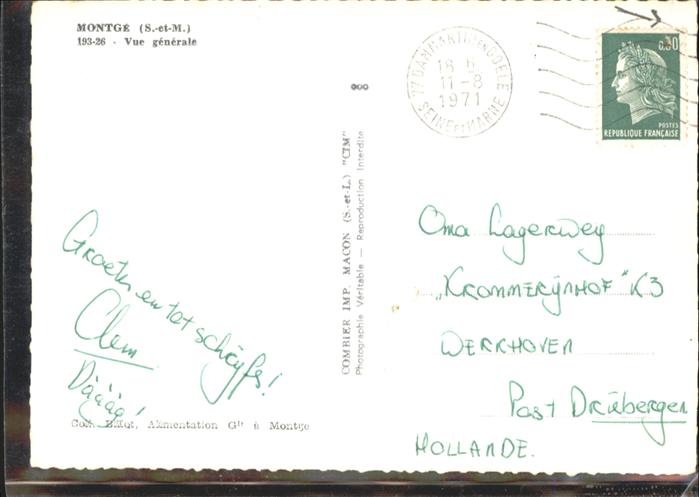 MONTGÉ (S.-et-M.)
193-26 - Vue générale
Groeten en tot schrijfs!
Clem.
Dààag!
Com. Billot, Alimentation Gle à Montge
COMBIER IMP. MACON (S.-et-L.) "CIM"
Photographie Véritable — Reproduction Interdite
77 DAMMARTIN EN GOELE
18 H
11-8
1971
SEINE ET MARNE
0,30
POSTES
REPUBLIQUE FRANÇAISE
Oma Lagerwey
„KROMMERIJNHOF" K3
WERKHOVEN
Post Driebergen
HOLLANDE.